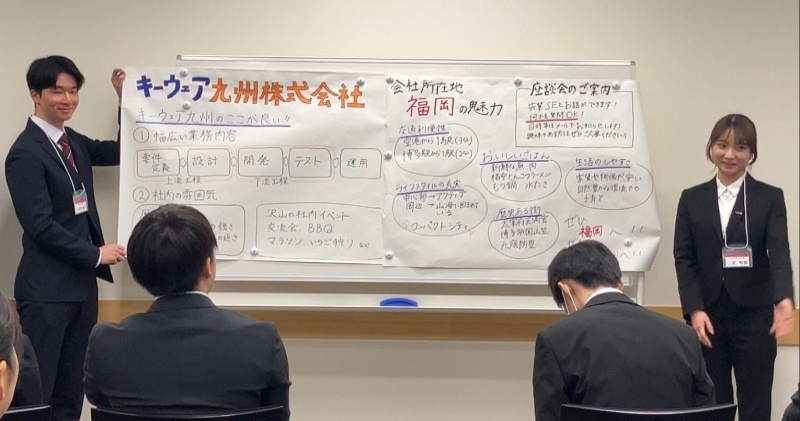 キーウェア九州株式会社
キーウェア九州のここが良い!!
① 幅広い業務内容
要件定義 設計 開発 テスト 運用
上流工程 下流工程
② 社内の雰囲気
沢山の社内イベント
交流会、BBQ
マラソン、いちご狩り など
会社所在地
福岡の魅力
交通利便性
空港から1駅
博多駅から1駅
おいしいごはん
新鮮な魚、肉
とんこつラーメン
もつ鍋 水たき
ライフスタイルの充実
中心部→アクティブ
周辺→山・海に囲まれている
コンパクトシティ
歴史ある街
博多祇園山笠
元寇防塁
生活のしやすさ
家賃や物価が安い
自然豊かな環境での
子育て
座談会のご案内
先輩SEとお話しできます!
何でも質問OK!
日時等はメールでお知らせします!
ぜひ
福岡へ!!